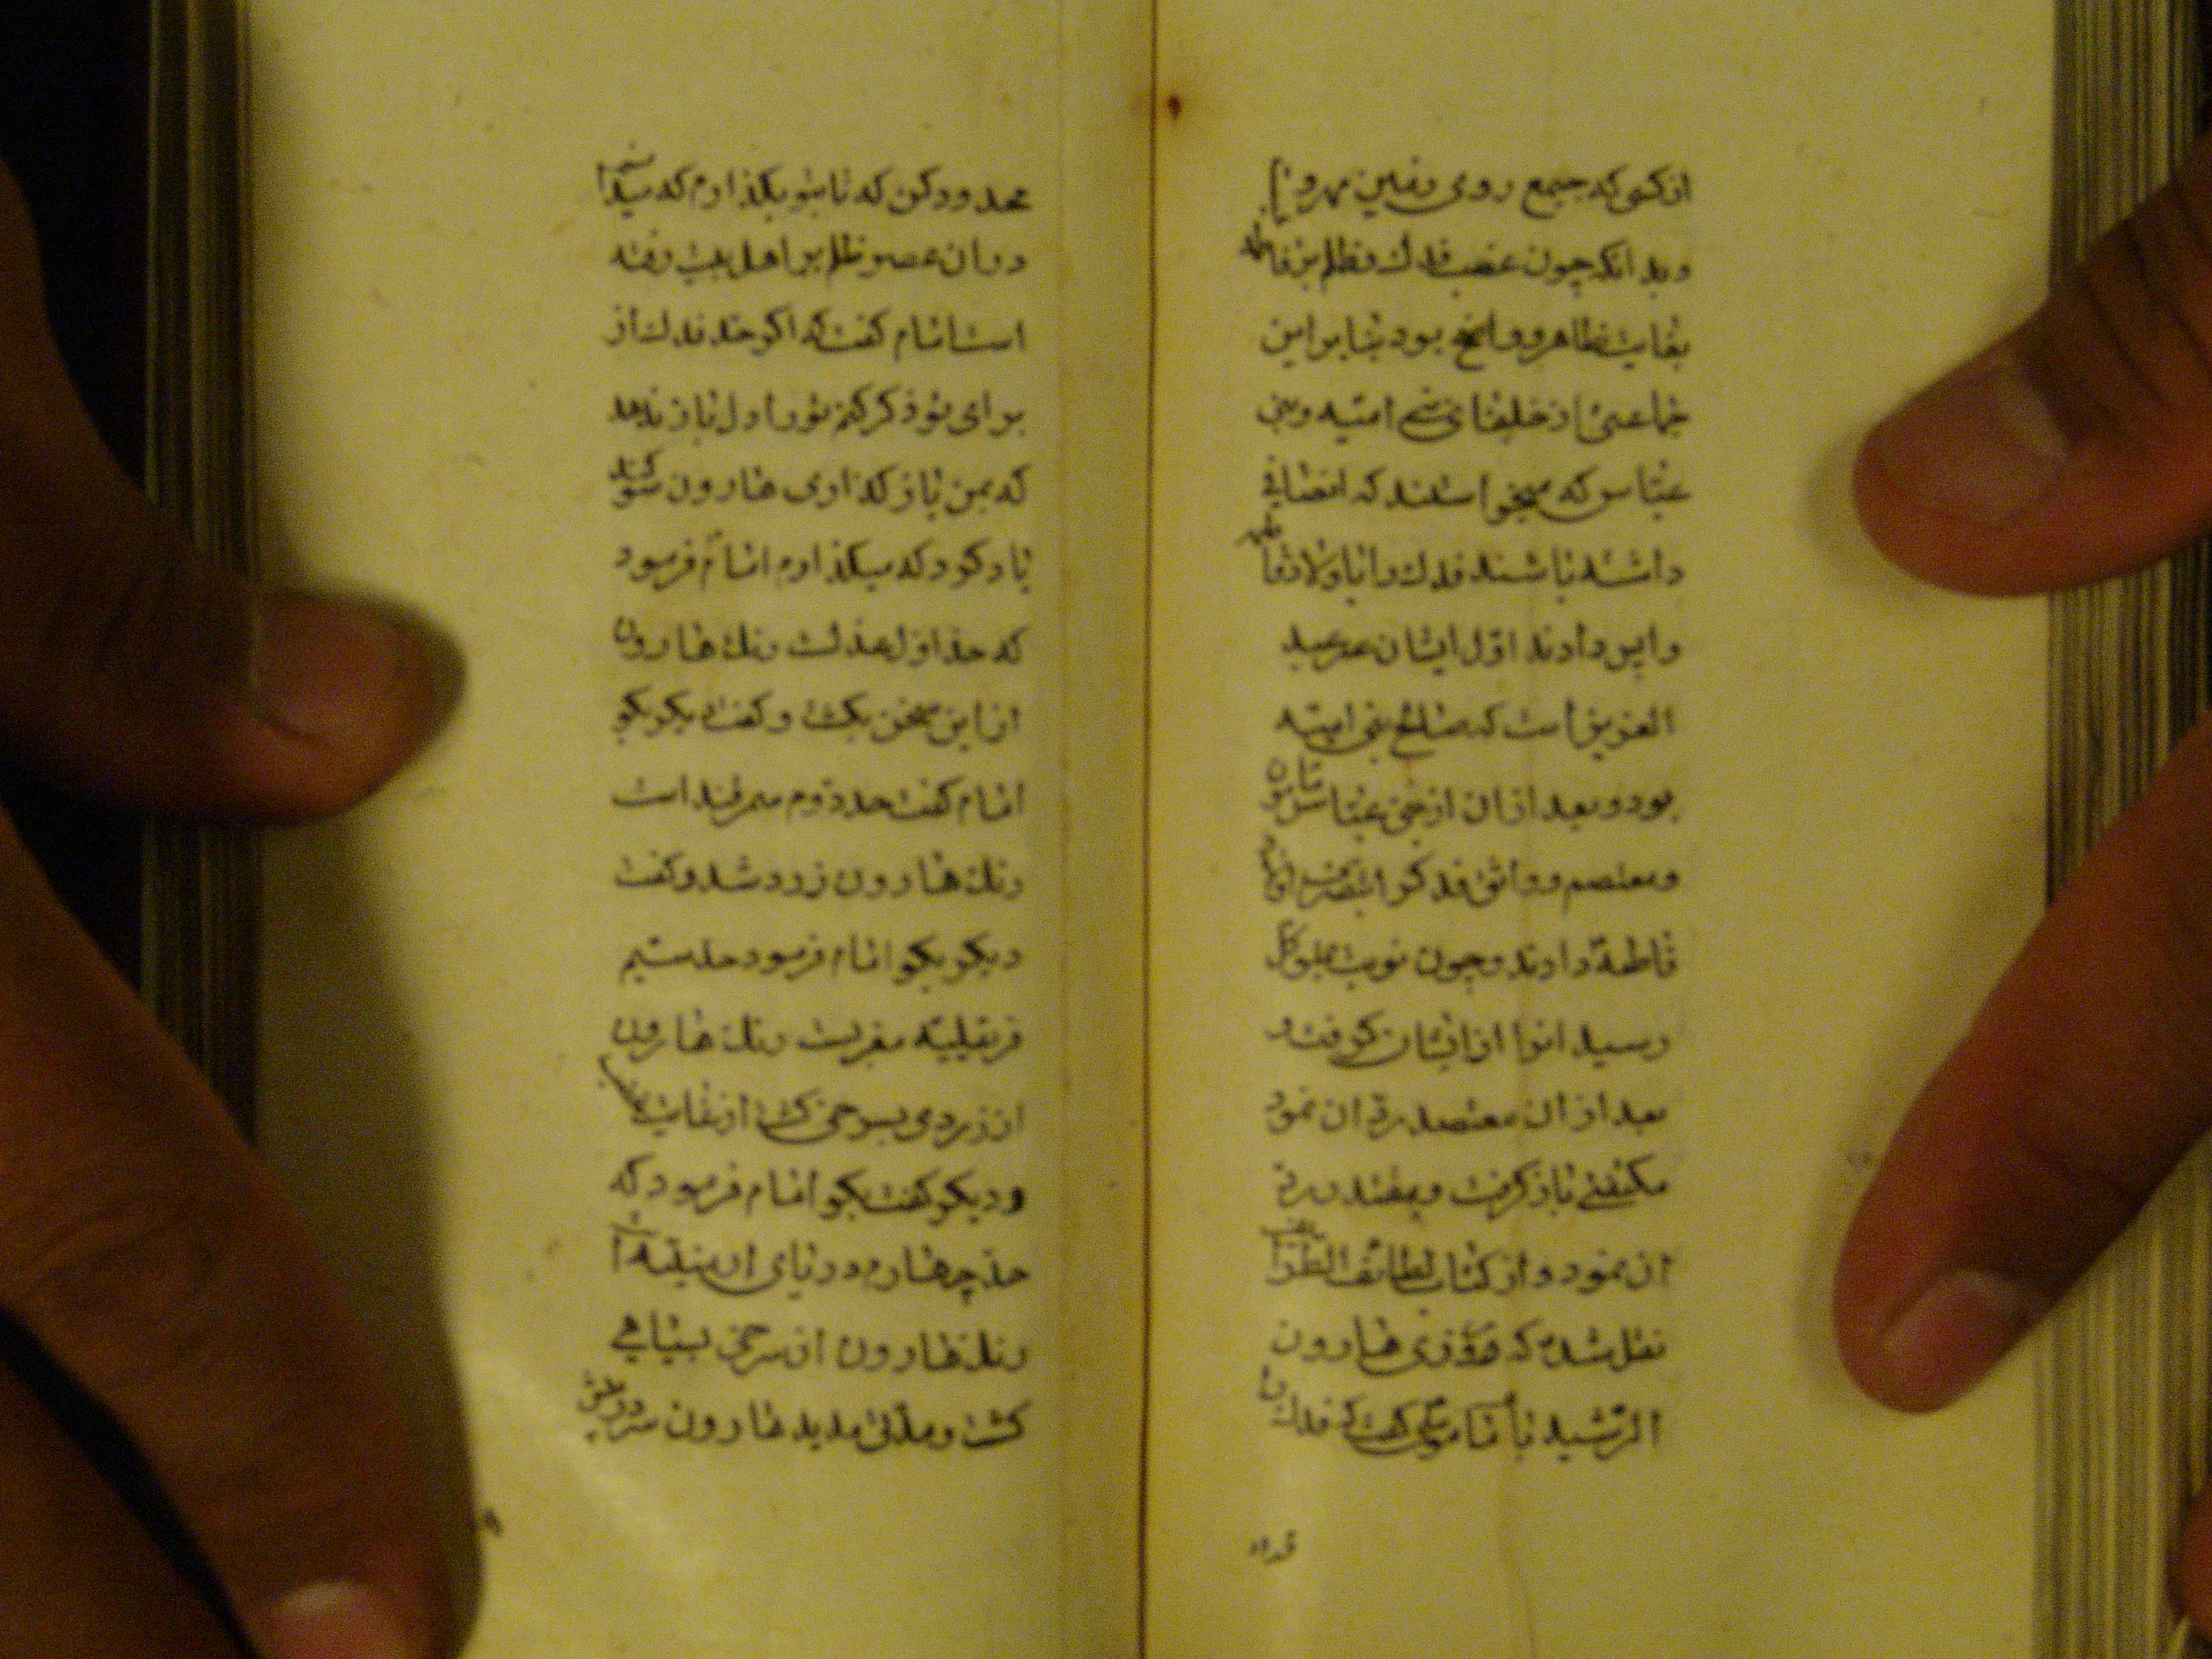 از کسی که جمیع روی زمین
و بدانکه چون غصب فدک و ظلم بر فاطمه
بغایت ظاهر و واضح بود بنا براین
جماعتی از خلیفهای بنی امیه و بنی
عباس که میخواستند که انصافی
داشته باشند فدک را باولاد فاطمه
واپس دادند اول ایشان عمر عبد
العزیز است که صالح بنی امیه
بود و بعد ازان از بنی عباس مامون
و معتصم و واثق فدک را بتصرف اولاد
فاطمه دادند و چون نوبت بمتوکل
رسید انرا از ایشان گرفت و
بعد از ان معتضد رد ان نمود
مکتفی باز گرفت و مقتدر رد
ان نمود و از کتاب لطائف الطوائف
نقل شده که روزی هارون
الرشید بامام موسی گفت که فدک را
محدود کن که تا بتو بگذارم که میدانم
در ان عصر ظلم بر اهل بیت رفته
است امام گفت که اگر حد فدک از
برای تو ذکر کنم تو را دل باز ندهد
که بمن باز گذاری هارون سوکند
یاد کرد که میگذارم امام فرمود
که حد اول عدنست رنک هارون
از این سخن بکشت و گفت دیکر بکو
امام گفت حد دوم سمرقند است
رنک هارون زرد شد و گفت
دیکر بکو امام فرمود حد سیم
فریقیه مغربست رنک هارون
از زردی بسرخی کشت از غایت غضب
و دیکر گفت بکو امام فرمود که
حد چهارم دریای ارمنیه است
رنک هارون از سرخی بسیاهی
کشت و مدتی مدید هارون سر در پیش